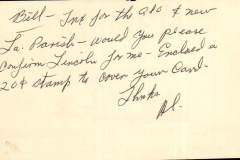 Bill - Tnx for the QSO & new
La. Parish - would you please
confirm Lincoln for me - Enclosed a
20¢ stamp to cover your Card -
Thnks